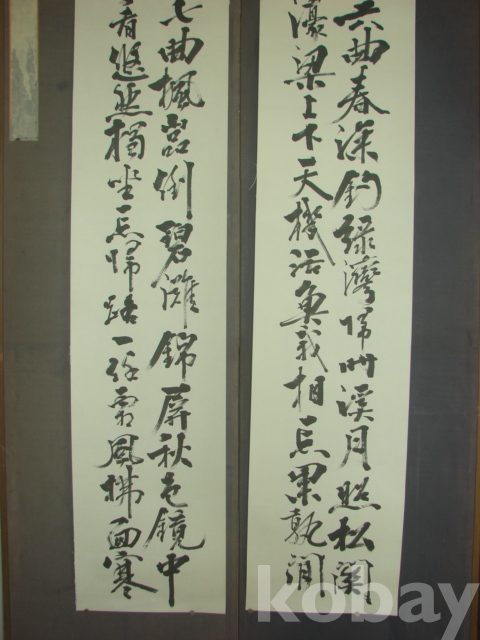 六曲春深釣綠灣歸時溪月照松關
濠梁上下天機活魚我相忘果孰閒
七曲楓嵒倒碧灘錦屛秋色鏡中
看悠然獨坐忘歸路一任霜風拂面寒
kobay